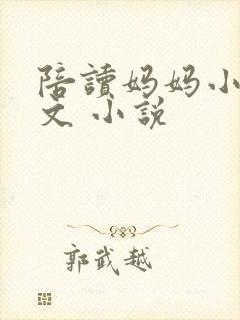 陪讀妈妈小
文 小說
郭武越